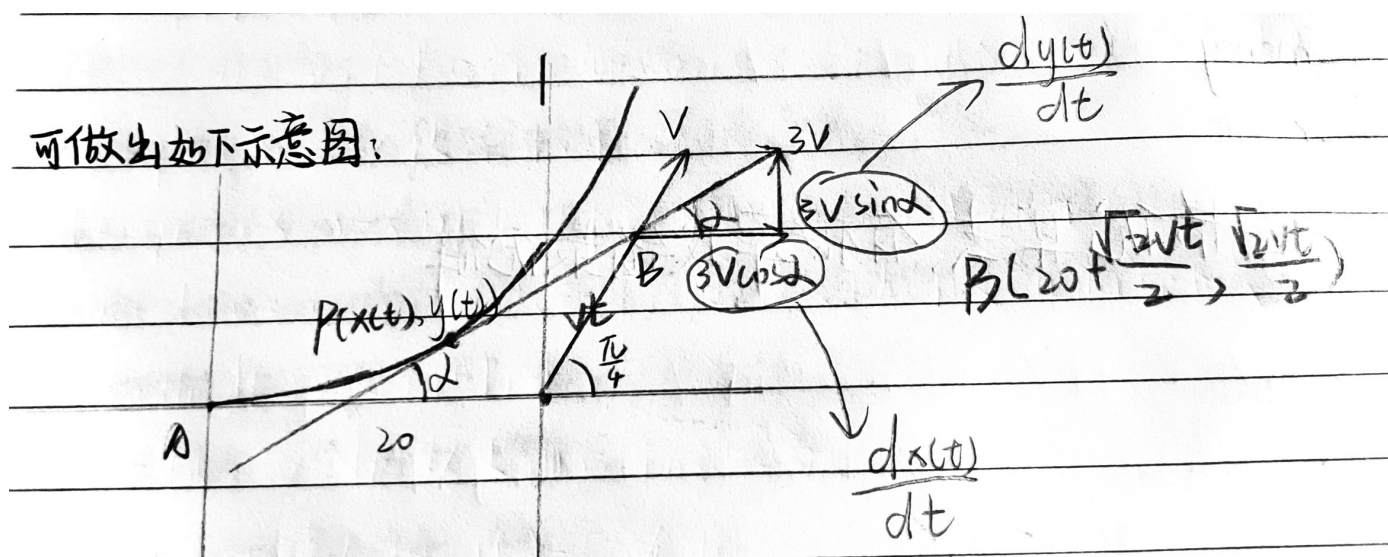 可做出如下示意图:
dy(t)/dt
V
3V
α
3Vsinα
B
3Vcosα
B(20+√2vt/2, √2vt/2)
P(x(t),y(t))
vt
α
π/4
A
20
dx(t)/dt